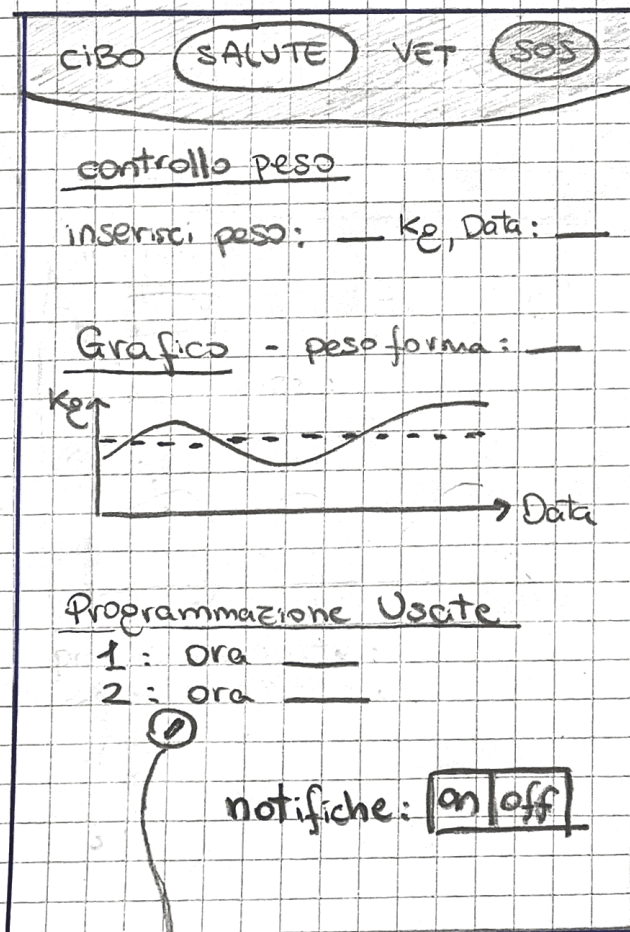 CIBO SALUTE VET SOS
controllo peso
inserisci peso: __ Kg, Data: __
Grafico - peso forma: __
Kg
Data
Programmazione Uscite
1: ora __
2: ora __
notifiche: on off